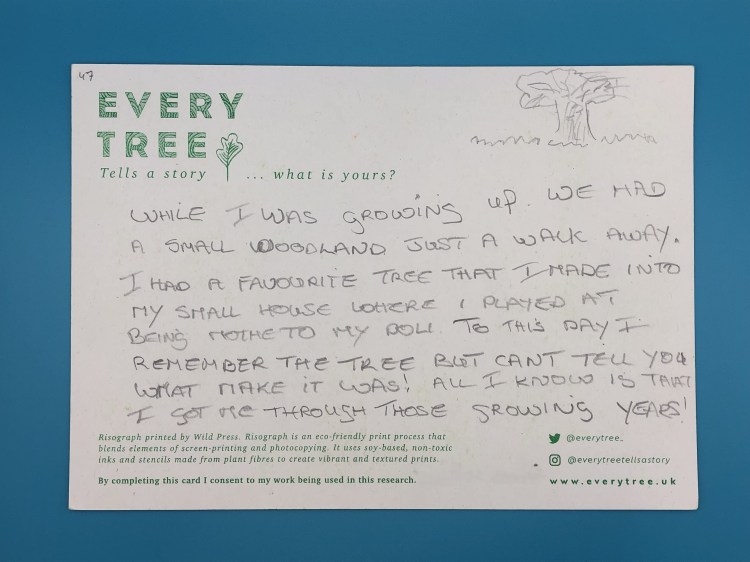 47
EVERY
TREE
Tells a story ... what is yours?
WHILE I WAS GROWING UP. WE HAD
A SMALL WOODLAND JUST A WALK AWAY.
I HAD A FAVOURITE TREE THAT I MADE INTO
MY SMALL HOUSE WHERE I PLAYED AT
BEING MOTHE TO MY DOLL. TO THIS DAY I
REMEMBER THE TREE BUT CANT TELL YOU
WHAT MAKE IT WAS! ALL I KNOW IS THAT
I GOT ME THROUGH THOSE GROWING YEARS!
Risograph printed by Wild Press. Risograph is an eco-friendly print process that
blends elements of screen-printing and photocopying. It uses soy-based, non-toxic
inks and stencils made from plant fibres to create vibrant and textured prints.
By completing this card I consent to my work being used in this research.
@everytree_
@everytreetellsastory
www.everytree.uk